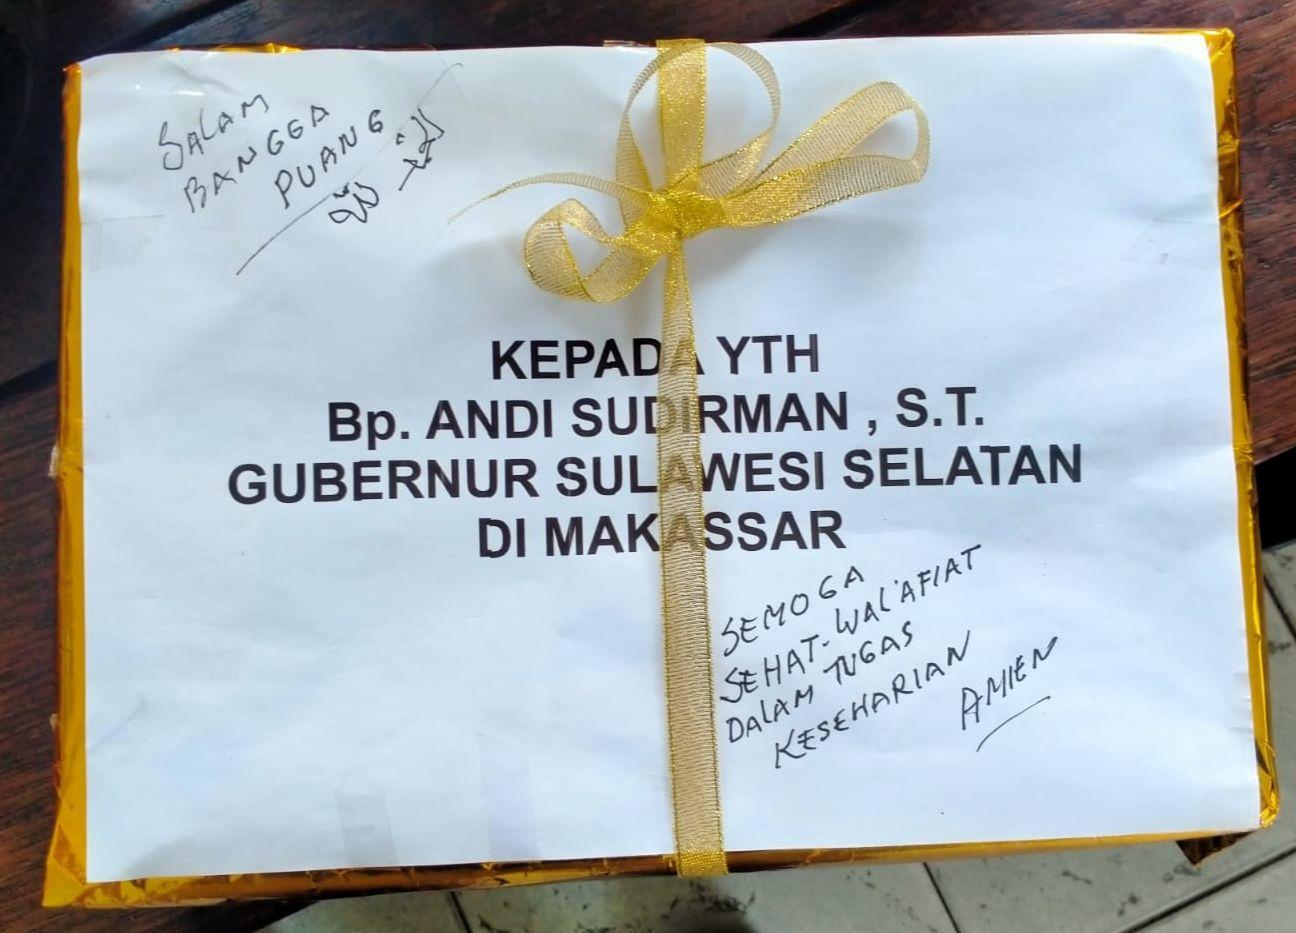 SALAM
BANGGA
PUANG
KEPADA YTH
Bp. ANDI SUDIRMAN , S.T.
GUBERNUR SULAWESI SELATAN
DI MAKASSAR
SEMOGA
SEHAT-WAL'AFIAT
DALAM TUGAS
KESEHARIAN
AMIEN